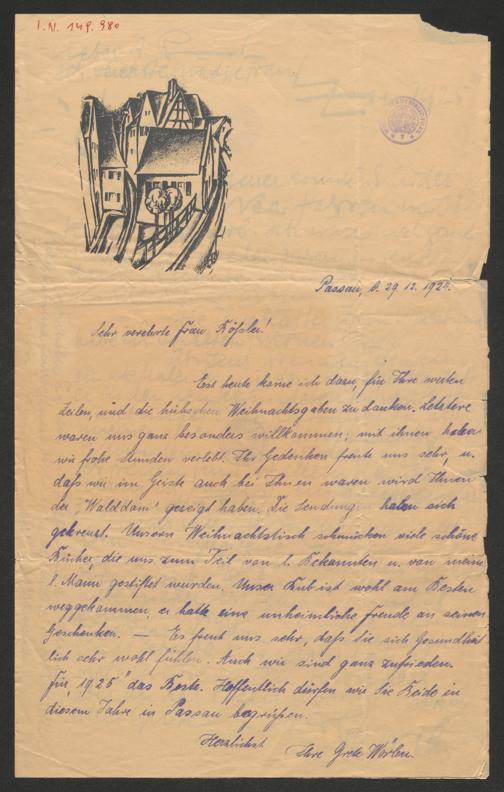 I.N. 149.980
Passau, d. 29.12.1924.
Sehr verehrte Frau Rößler!
Erst heute komme ich dazu, für Ihre werten
Zeilen, und die hübschen Weihnachtsgaben zu danken. Letztere
waren uns ganz besonders willkommen; mit ihnen haben
wir frohe Stunden verlebt. Ihr Gedenken freute uns sehr, u.
daß wir im Geiste auch bei Ihnen waren wird Ihnen
der „Walddom" gezeigt haben. Die Sendungen haben sich
gekreuzt. Unsern Weihnachtstisch schmücken viele schöne
Bücher, die uns zum Teil von l. Bekannten u. von meinem
l. Mann gestiftet wurden. Unser Bub ist wohl am Besten
weggekommen, er hatte eine unheimliche Freude an seinen
Geschenken. — Es freut uns sehr, daß Sie sich gesundheit
lich sehr wohl fühlen. Auch wir sind ganz zufrieden.
Für „1925" das Beste. Hoffentlich dürfen wir Sie Beide in
diesem Jahre in Passau begrüßen.
Herzlichst
Ihre Grete Wörlen.